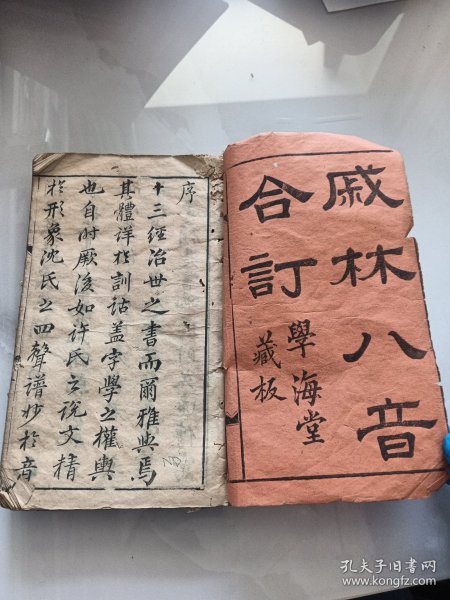 戚林八音
合訂
學海堂
藏板
序
十三經治世之書而爾雅與焉
其體詳於訓詁蓋字學之權輿
也自時厥後如許氏之說文精
於形象沈氏之四聲譜妙於音
孔夫子旧书网
www.kongfz.com